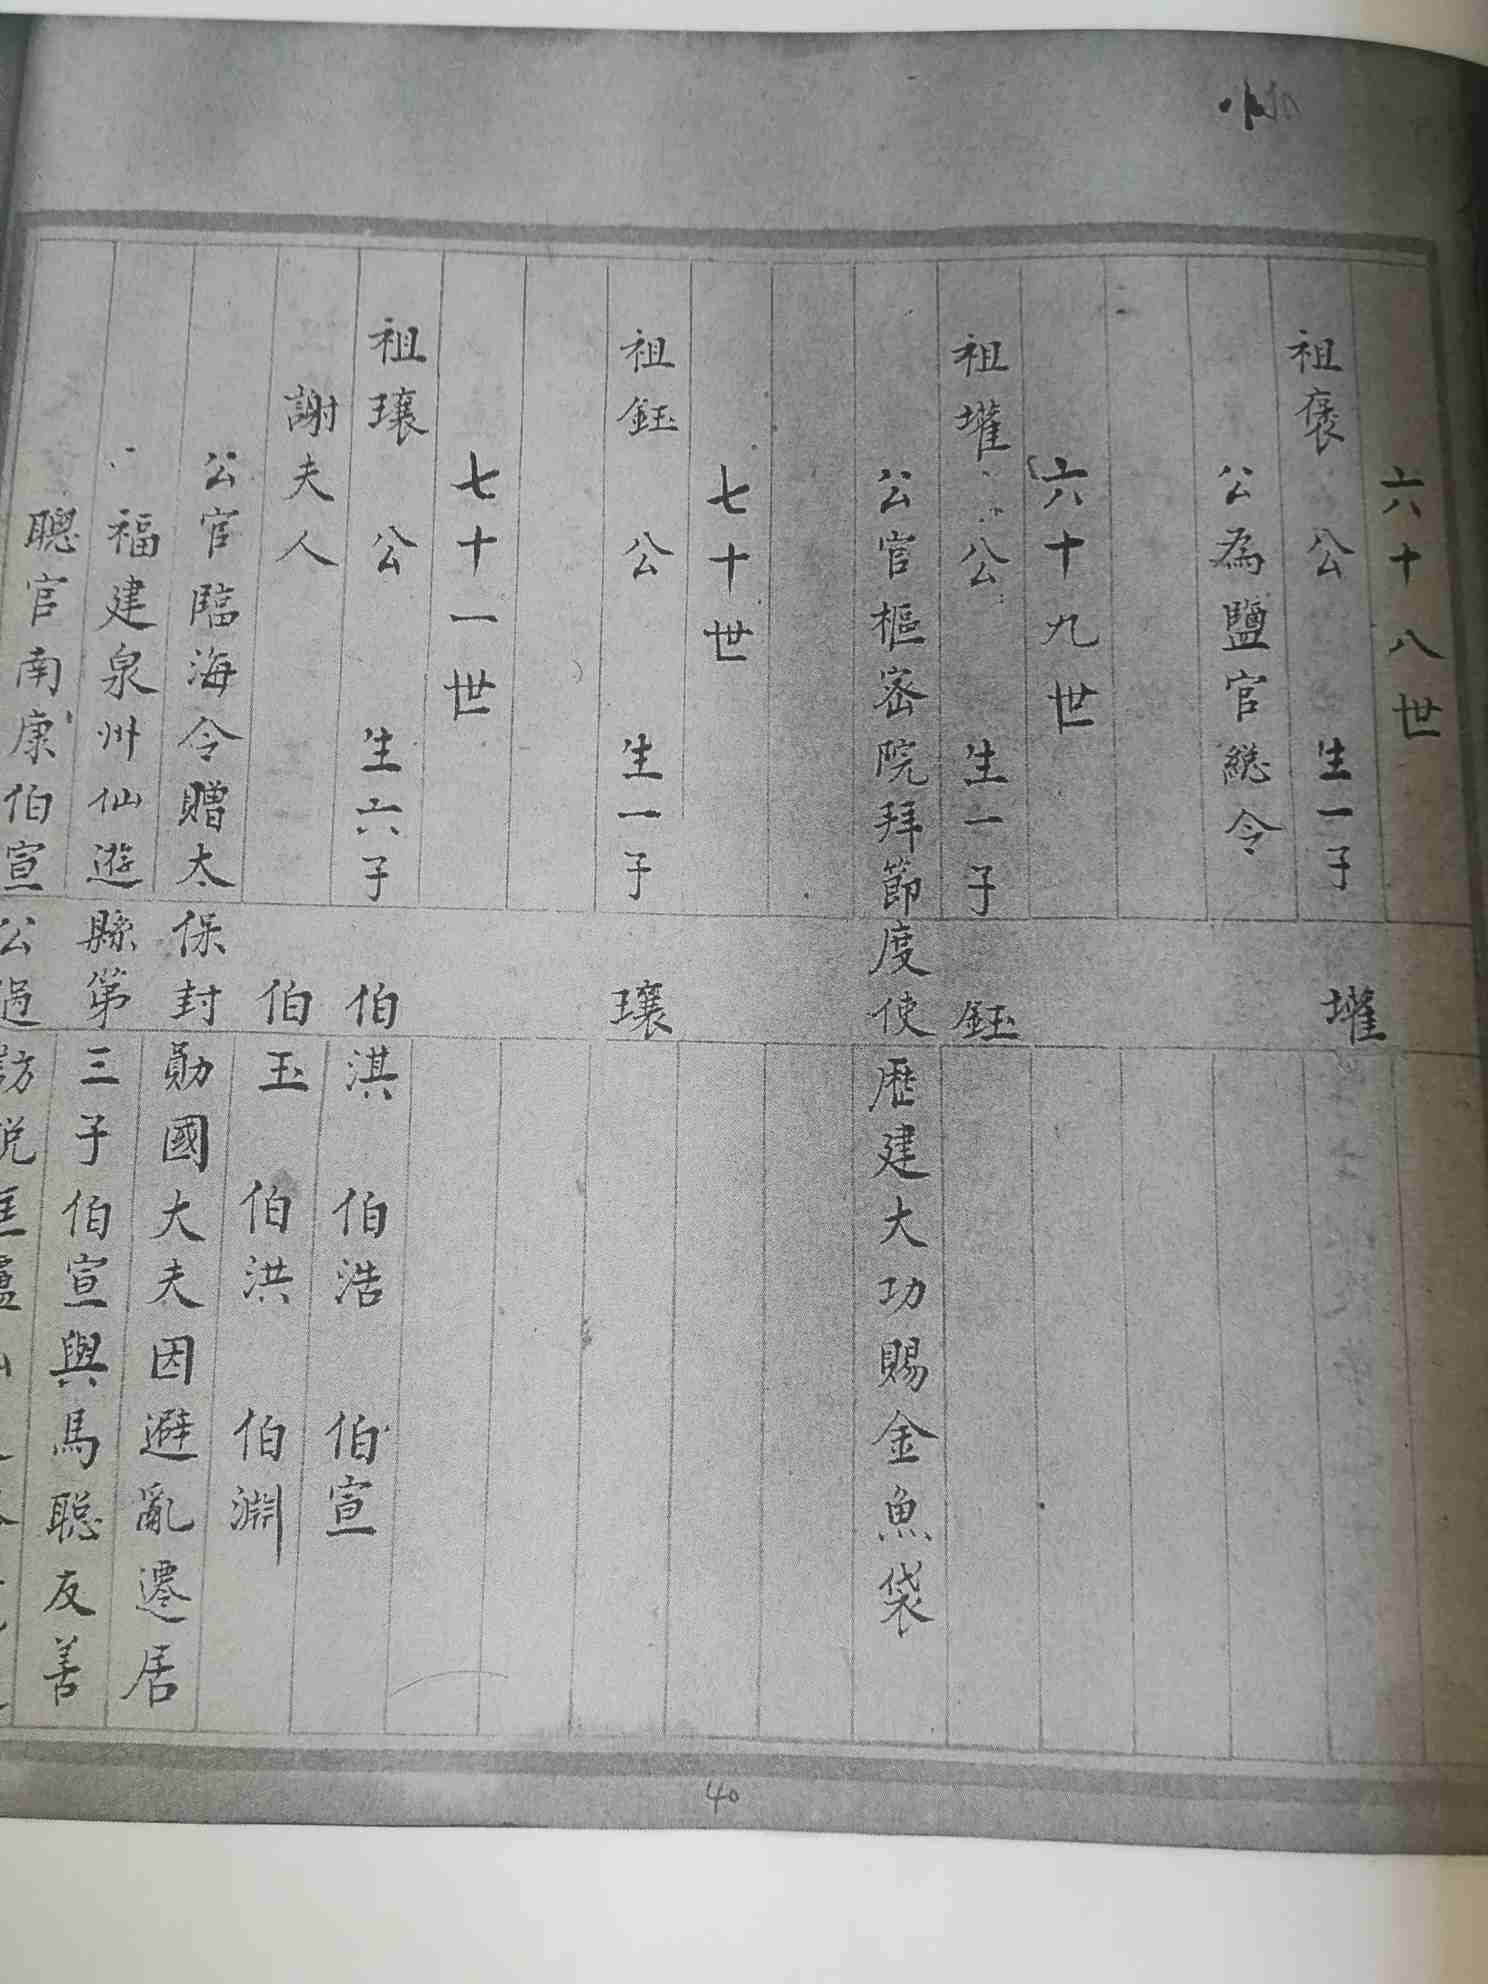 六十八世
祖褒公 生一子 㩲
公為鹽官縂令
六十九世
祖㩲公 生一子 鈺
公官樞宻院拜節度使歷建大功賜金魚袋
七十世
祖鈺公 生一子 瓌
七十一世
祖瓌公 生六子 伯淇 伯浩 伯宣
謝夫人 伯玉 伯洪 伯淵
公官臨海令贈太保封勛國大夫因避亂遷居
福建泉州仙遊縣第三子伯宣與馬聰友善
聰官南康伯宣公過訪
40